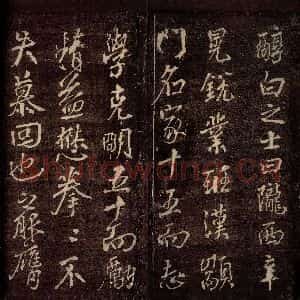 醇白之士曰隴西辛
晃銳業班漢顓
門名家十五而志
學克明五十而勵
精益懋拳〻不
失慕回也之服膺